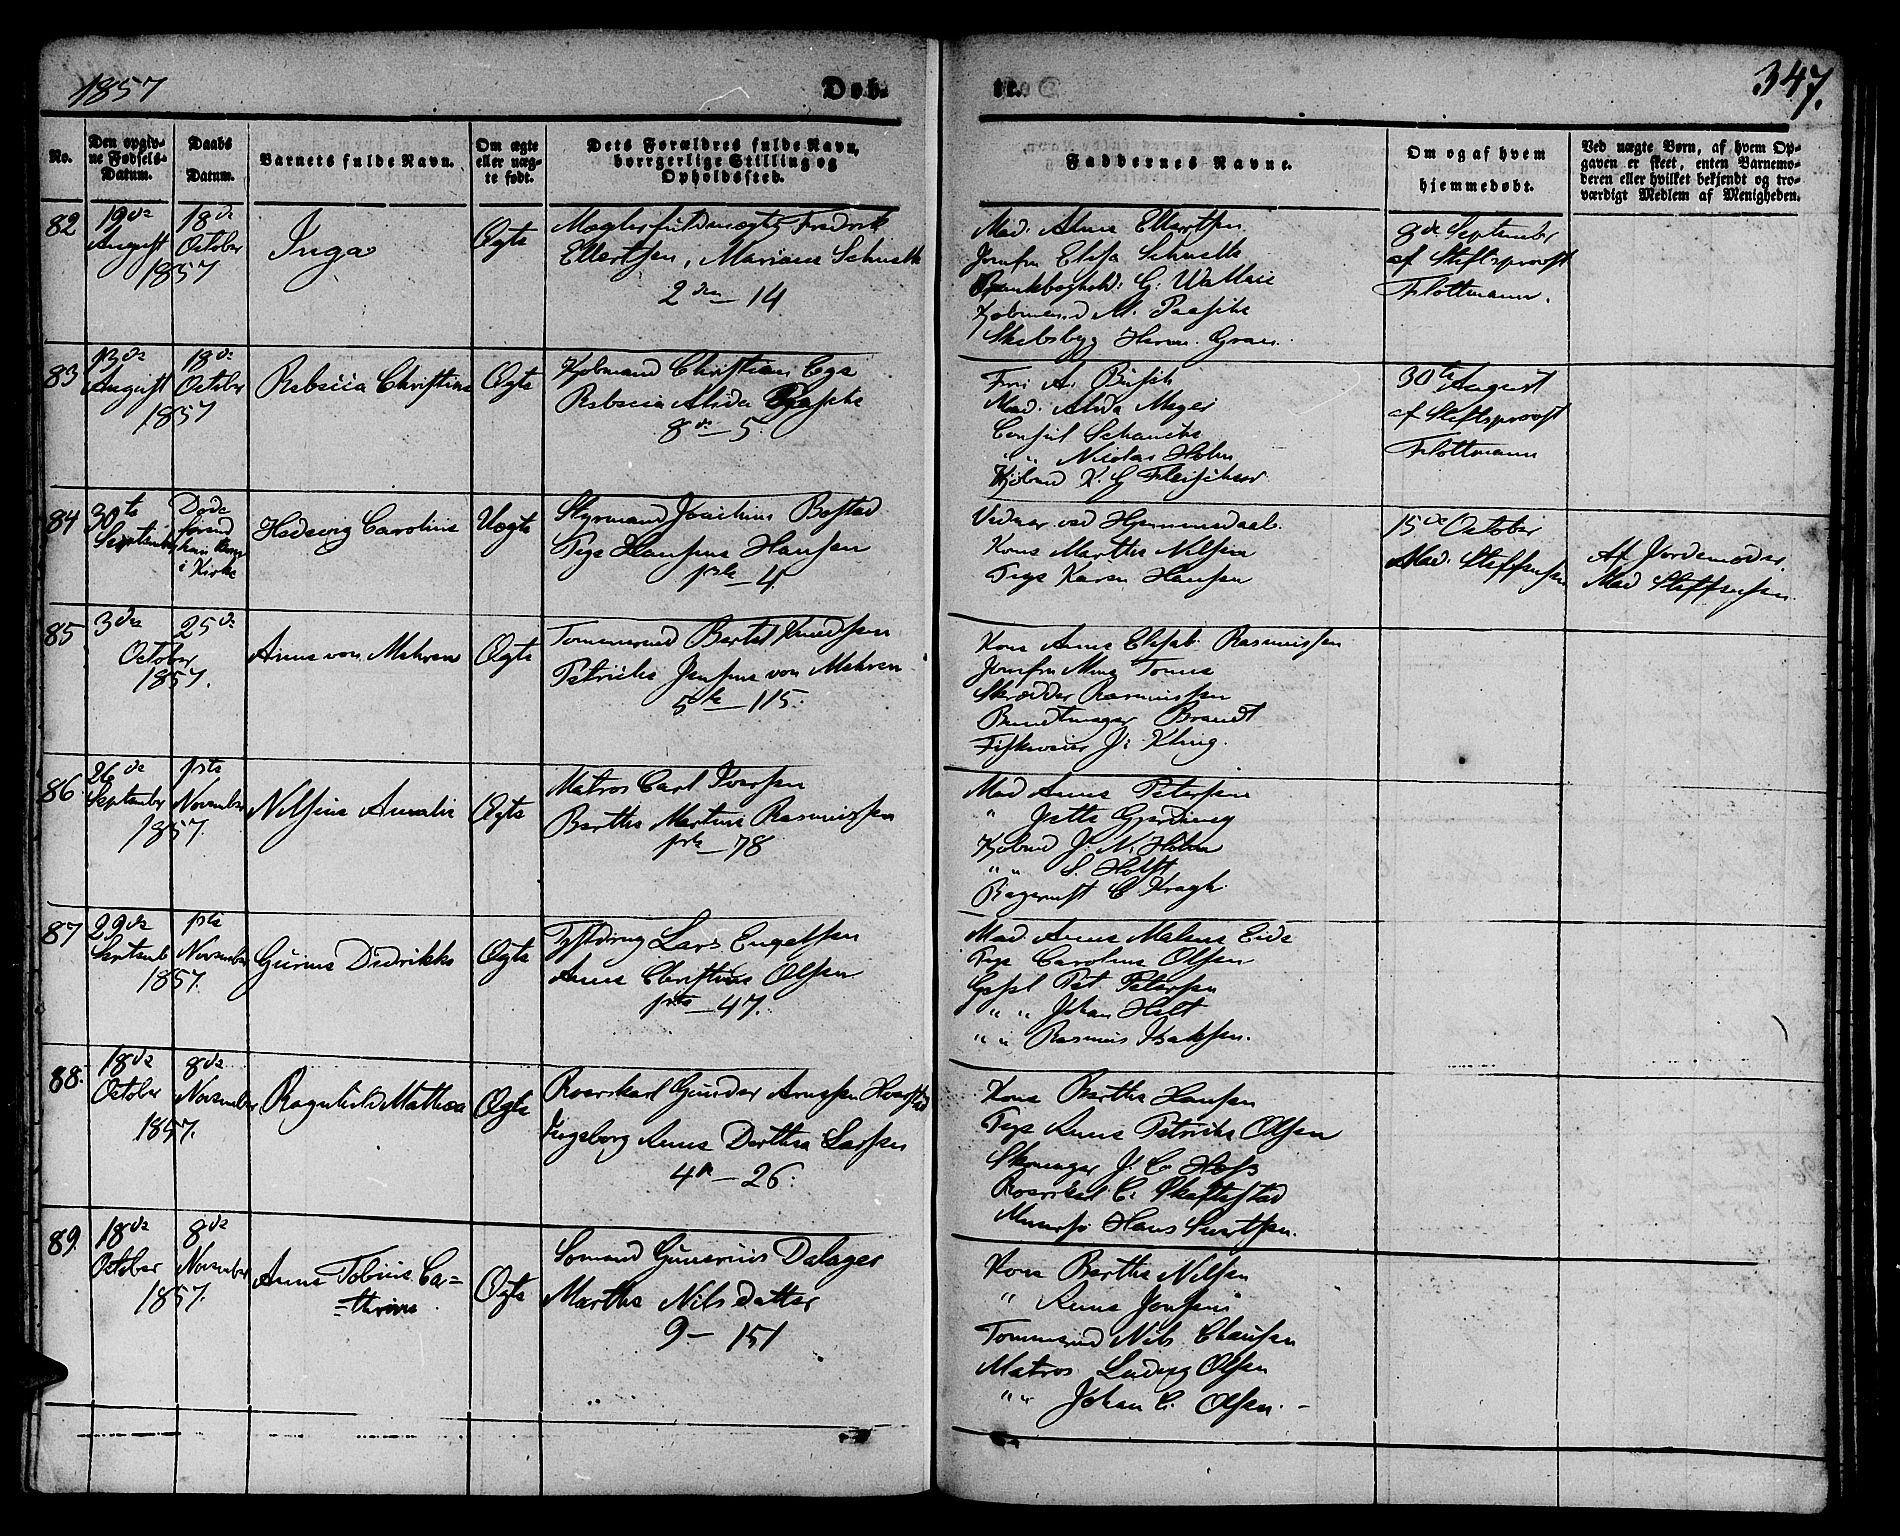 1857
Døb-
te.
347.
No.
Den opgiv-
ne Fødsels-
Datum.
Daabs
Datum.
Barnets fulde Navn.
Om ægte
eller uæg-
te født.
Dets Forældres fulde Navn,
borgerlige Stilling og
Opholdssted.
Faddernes Navne.
Om og af hvem
hjemmedøbt.
Ved uægte Børn, af hvem Op-
gaven er skeet, enten Barnemo-
deren eller hvilket bekjendt og tro-
værdigt Medlem af Menigheden.
82
19de
August
18de
October
1857
Inga
Ægte
Mæglerfuldmægtig Fredrik
Ellertsen, Mariane
2den - 14
Mad. Anna Ellertsen
Jomfru Elisa
G. Wallace
Kjøbmand M. Paasche
Skibsbyg Herm. Gran.
8de September
af Stiftsprovst
Flottmann.
83
13de
August
18de
October
1857
Rebecca Christine
Ægte
Kjøbmand Christian Ege
Rebecca Alida Paasche
8de - 5.
Fru A. Büsch
Mad. Alida Meyer
Consul Schancke
" " Nicolai Holm
Kjøbmd K. G Fleischer
30te August
af Stiftsprovst
Flottmann
84
30te
September
Døde
førend
kom
i Kirke
Hedevig Caroline
Uægte
Styrmand Joachim Bostad
Pige Hansine Hansen
1ste - 4.
ved
Kone Martha Nilsen
Pige Karen Hansen
15de October
Mad. Steffensen
Af Jordemoder
Mad Steffensen.
85
3die
25de
October
1857.
Anna von Mehren
Ægte
Tømmermd Bertel Knudsen
Petricke Jensine von Mehren
5te - 115.
Kone Anna Elisab. Rasmussen
Jomfru
Skrædder Rasmussen
Bundtmager Brandt
J. Kling.
86
26de
September
1ste
November
1857.
Nilsine Amalie
Ægte
Matros Carl Iversen
Berthe Martine Rasmussen
1ste - 78
Mad Anna Petersen
" Jette Gjerding
Kjøbmd J. N. Holm
" " S. Holst
Bagermst C Kragh.
87
29de
Septemb
1ste
November
1857.
Gurine Didrikke
Ægte
Lars Engelsen
Anna Christine Olsen
1ste - 47.
Mad. Anna Malene Eide
Pige Caroline Olsen
Gesel Pet Petersen
" " Johan Holt
" " Rasmus Isaksen.
88.
18de
October
8de
November
1857.
Ragnhild Mathea
Ægte
Roerskarl Gunder Arnesen
Ingeborg Anna Dorthea Larsen
4de - 26.
Kone Berthe Hansen
Pige Anna Petricke Olsen
J. C.
Roerskarl C. Skaftestad
Hans Sivertsen.
89.
18de
October
8de
November
1857.
Anna Tobine Ca=
=thrine
Ægte
Sømand Gunerius Dalager
Martha Nilsdatter
9 - 151
Kone Berthe Nilsen
" Anna Jonsen
Tømmermd Nils Clausen
Matros Ludvig Olsen
" " Johan C. Olsen.